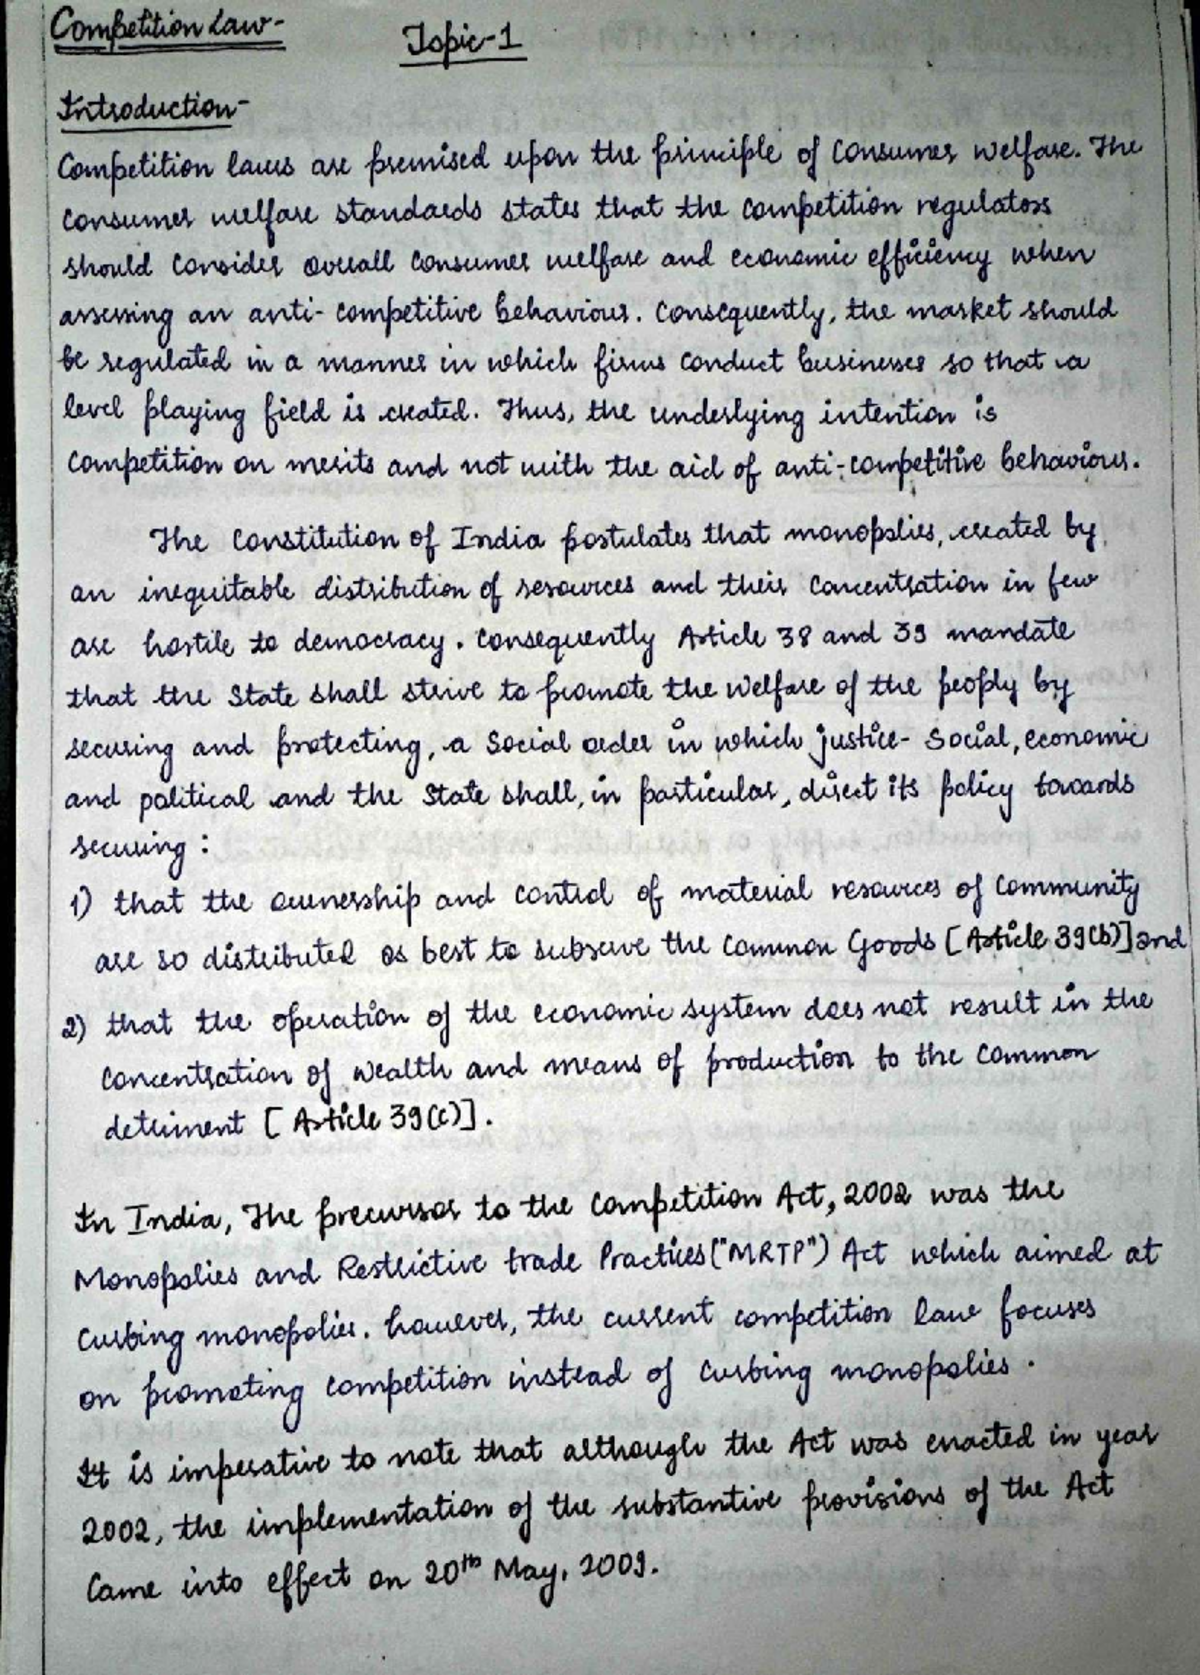 Competition Law-
Topic-1
Introduction-
Competition laws are premised upon the principle of Consumer Welfare. The
consumer welfare standards states that the competition regulators
should consider overall consumer welfare and economic efficiency when
assessing an anti-competitive behaviour. Consequently, the market should
be regulated in a manner in which firms conduct businesses so that a
level playing field is created. Thus, the underlying intention is
competition on merits and not with the aid of anti-competitive behaviour.
The Constitution of India postulates that monopolies, created by
an inequitable distribution of resources and their concentration in few
are hostile to democracy. Consequently Article 38 and 39 mandate
that the State shall strive to promote the welfare of the peoply by
securing and protecting, a Social order in which justice- Social, economic
and political and the State shall, in particular, direct its policy towards
securing :
1) that the ownership and control of material resources of Community
are so distributed as best to subserve the Common Goods [Article 39(b)] and
2) that the operation of the economic system does not result in the
concentration of wealth and means of production to the common
detriment [ Article 39(c)].
In India, The precursor to the Competition Act, 2002 was the
Monopolies and Restrictive trade Practices ("MRTP") Act which aimed at
curbing monopolies. however, the current competition law focuses
on promoting competition instead of curbing monopolies.
It is imperative to note that although the Act was enacted in year
2002, the implementation of the substantive provisions of the Act
Came into effect on 20th May, 2009.